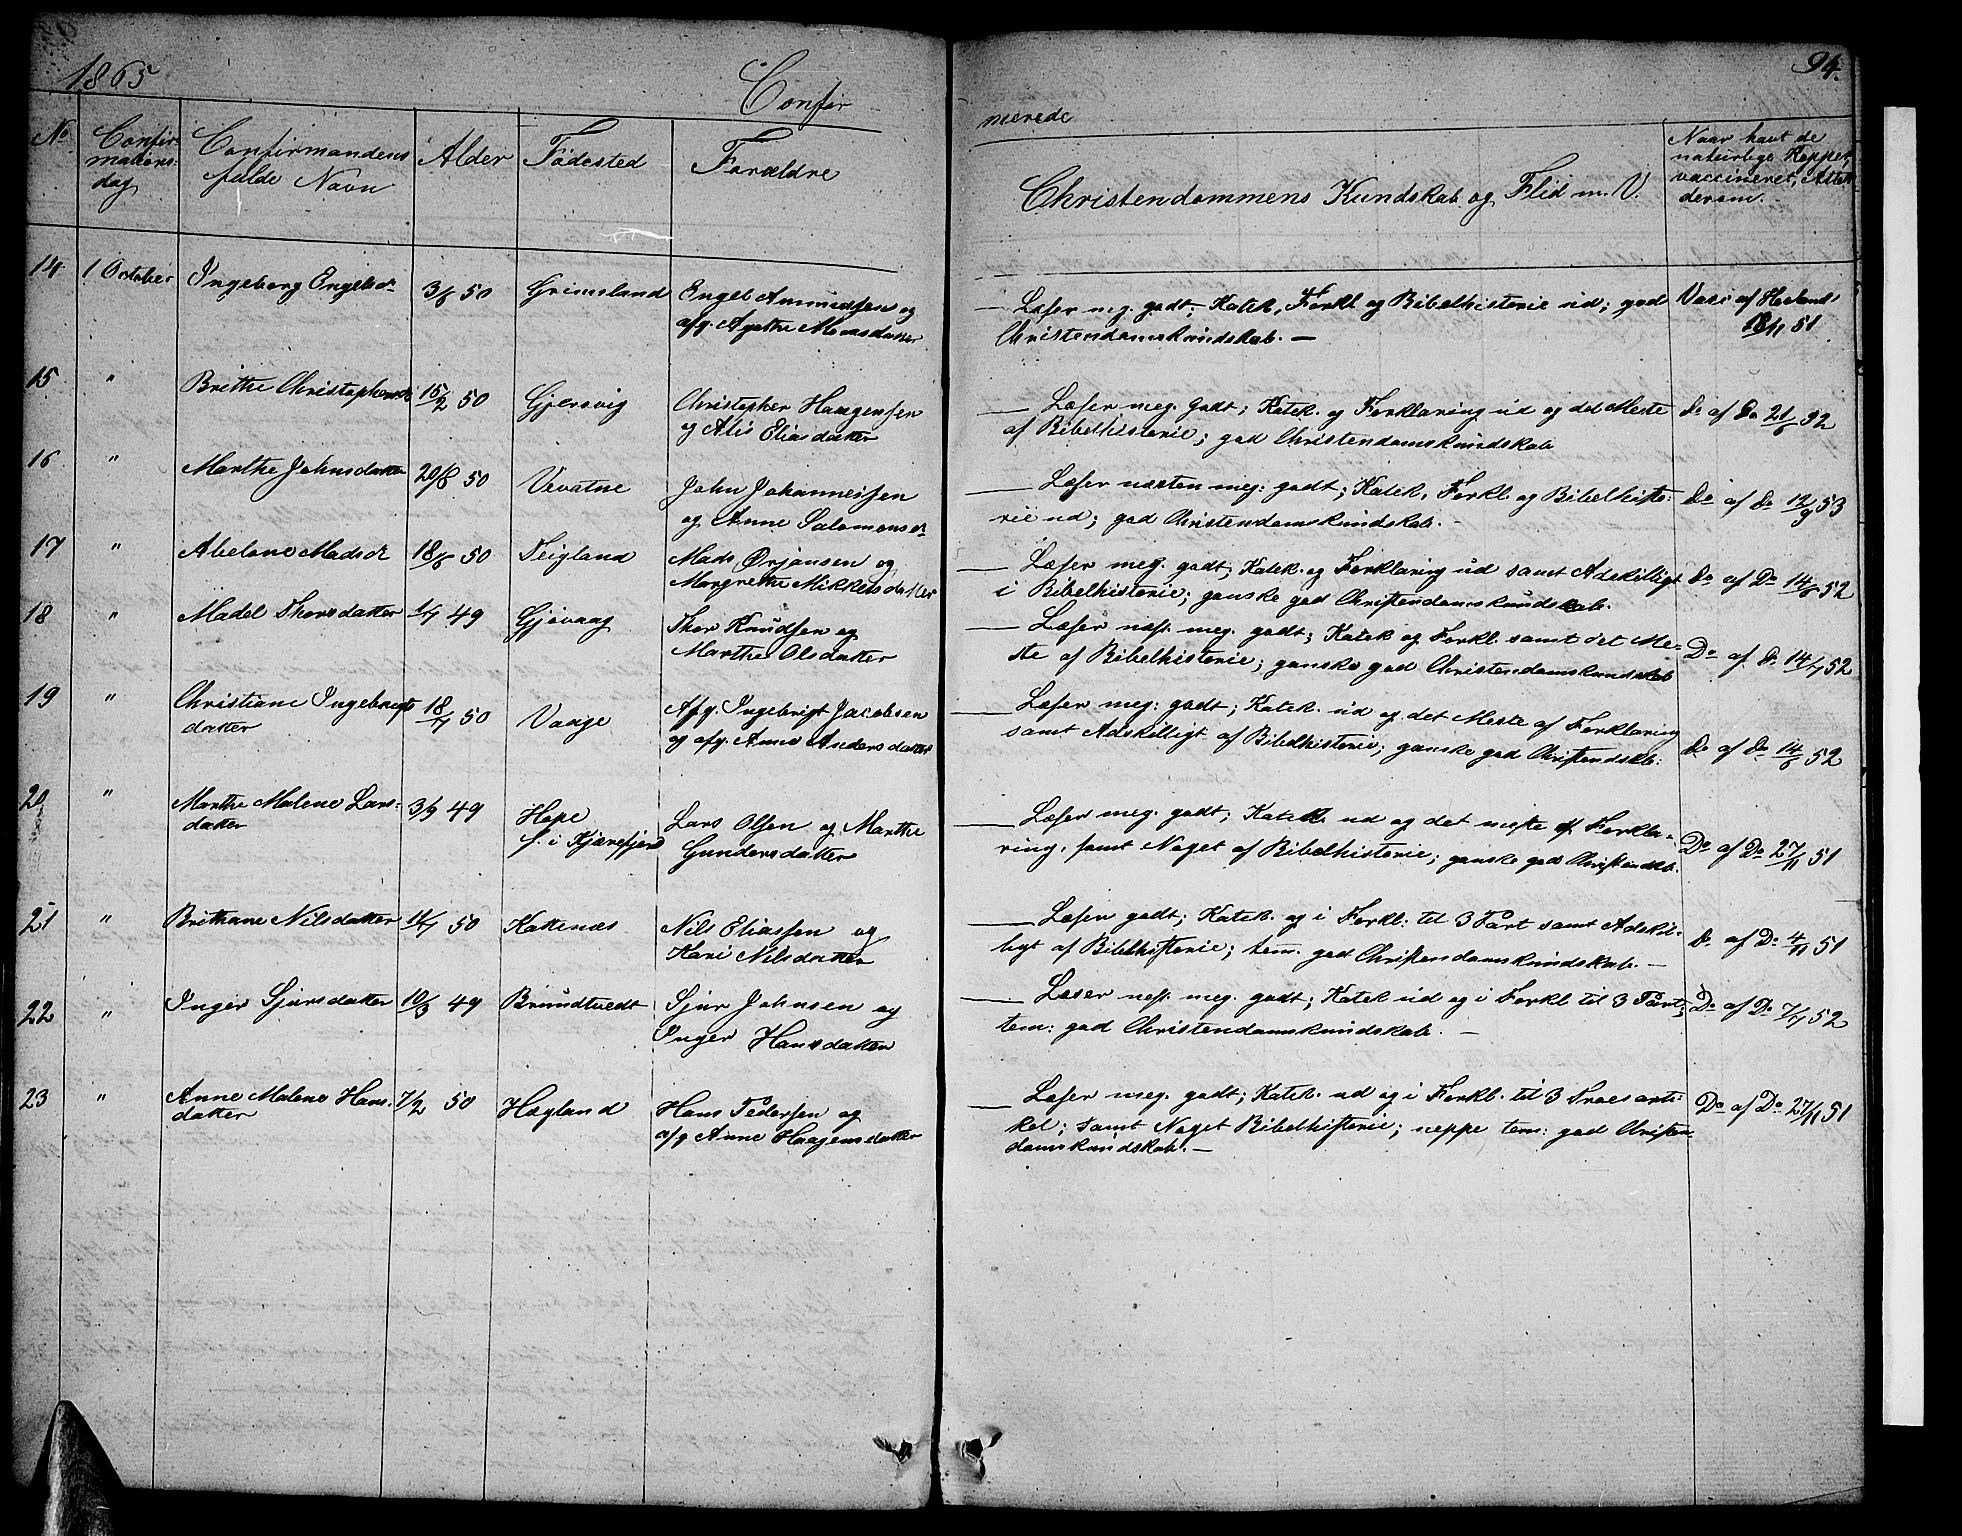 1865
Confir
merede
94.
No
Confir-
mations-
dag
Confirmandens
fulde Navn
Alder
Fødested
Forældre
Christendommens Kundskab og Flid m. V.
Naar havt de
naturlige Kopper,
vaccineret, Attest
derom.
14 1 October Ingeborg Engelsdr 3/8 50 Grimsland Engel Amundsen og
afg. Agathe Monsdatter
Læser meg. godt; Katek, Forkl og Bibelhistorie ud; god
Christendomskundskab. —
Vacc af
51
15 " Brithe Christophersdr 15/2 50 Gjersvig Christopher Haagensen
og Alis Eliasdatter
Læser meg. godt; Katek. og Forklaring ud og det Meste
af Bibelhistorie; god Christendomskundskab
do af do 21/6 52
16 " Marthe Johnsdatter 20/8 50 Vevatne John Johannessen
og Anne Salomonsdr
Læser næsten meg: godt; Katek, Forkl. og Bibelhisto-
rie ud; god Christendomskundskab. -
Do af do 12/9 53
17 " Abelone Madsdr 18/6 50 Teigland Mads Ørjansen og
Margrethe Mikkelsdatter
Læser meg. godt; Katek. og Forklaring ud samt Adskilligt
i Bibelhistorie; ganske god Christendomskundskab.
do af Do 14/6 52
18 " Madel Thorsdatter 1/7 49 Gjøvaag Thor Knudsen og
Marthe Olsdatter
Læser næst. meg. godt; Katek og Forkl. samt det Me-
ste af Bibelhistorie; ganske god Christendomskundskab
Do af D. 14/7 52
19 " Christiane Ingebrigts
datter 18/7 50 Vaage Afg. Ingebrigt Jacobsen
og afg. Anne Andersdatter
Læser meg: godt; Katek. ud og det Meste af Forklaring
samt Adskilligt af Bibelhistorie; ganske god Christendskb:
Do af Do 14/6 52
20 " Marthe Malene Lars-
datter 3/9 49 Hope
f. i Kjærefjord Lars Olsen og Marthe
Gundersdatter
Læser meg. godt; Katek. ud og det meste af Forkla-
ring, samt Noget af Bibelhistorie; ganske god Christendskb.
Do af Do 27/11 51
21 " Brithane Nilsdatter 14/7 50 Kattenæs Nils Eliassen og
Kari Nilsdatter
Læser godt; Katek. og i Forkl: til 3 Part samt Adskil-
ligt af Bibelhistorie; tem. god Christendomskundskab. —
D. af Do 4/11 51
22 " Inger Sjursdatter 10/3 49 Brundtvedt Sjur Johnsen og
Inger Hansdatter
Læser næst. meg. godt; Katek ud og i Forkl til 3 Part;
tem: god Christendomskundskab. -
Do af Do 7/7 52
23 " Anne Malene Hans-
datter 7/2 50 Høgland Hans Pedersen og
afg Anne Haagensdatter
Læser meg. godt; Katek. ud og i Forkl. til 3 Troesarti-
kel; samt Noget Bibelhistorie; neppe tem: god Christen-
domskundskab. —
Do af Do 27/11 51